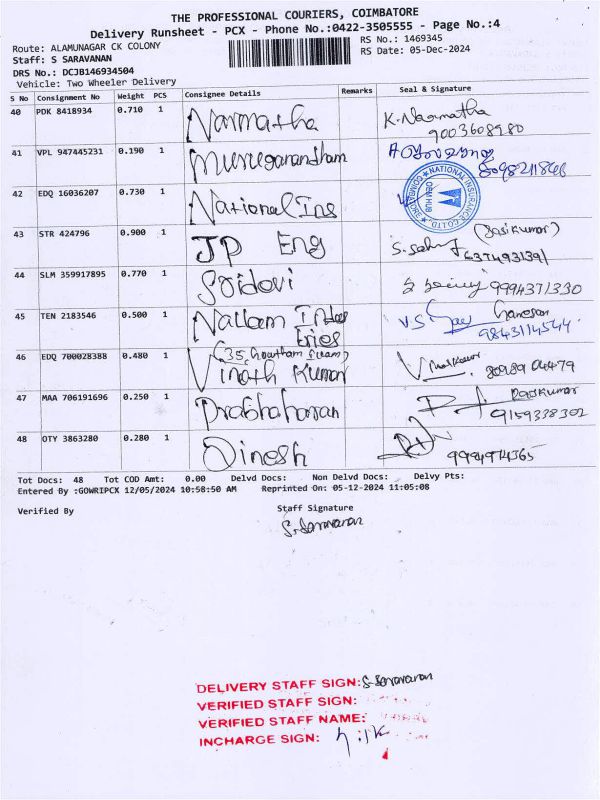 THE PROFESSIONAL COURIERS, COIMBATORE
Delivery Runsheet - PCX - Phone No.:0422-3505555 - Page No.:4
Route: ALAMUNAGAR CK COLONY
RS No.: 1469345
Staff: S SARAVANAN
RS Date: 05-Dec-2024
DRS No.: DCJB146934504
Vehicle: Two Wheeler Delivery
S No Consignment No Weight PCS Consignee Details Remarks Seal & Signature
40 PDK 8418934 0.710 1 Narmatha K. Narmatha
9003608980
41 VPL 947445231 0.190 1 Muruganandham
8098211846
42 EDQ 16036207 0.730 1 National Ins
NATIONAL INSURANCE CO LTD. COIMBATORE
OEM HUB
43 STR 424796 0.900 1 JP Eng (Sasikumar)
44 SLM 359917895 0.770 1 Sridevi 9994371330
45 TEN 2183546 0.500 1 Nallam Indus
tries
Ganesan
9843114544
46 EDQ 700028388 0.480 1 (35, Gowtham
Vinoth Kumar 80989 04479
47 MAA 706191696 0.250 1 Prabhaharan Rajkumar
9159338302
48 OTY 3863280 0.280 1 Dinesh
9994974365
Tot Docs: 48 Tot COD Amt: 0.00 Delvd Docs: Non Delvd Docs: Delvy Pts:
Entered By :GOWRIPCX 12/05/2024 10:58:50 AM Reprinted On: 05-12-2024 11:05:08
Verified By Staff Signature
S. Saravanan
DELIVERY STAFF SIGN: S. Saravanan
VERIFIED STAFF SIGN:
VERIFIED STAFF NAME:
INCHARGE SIGN: